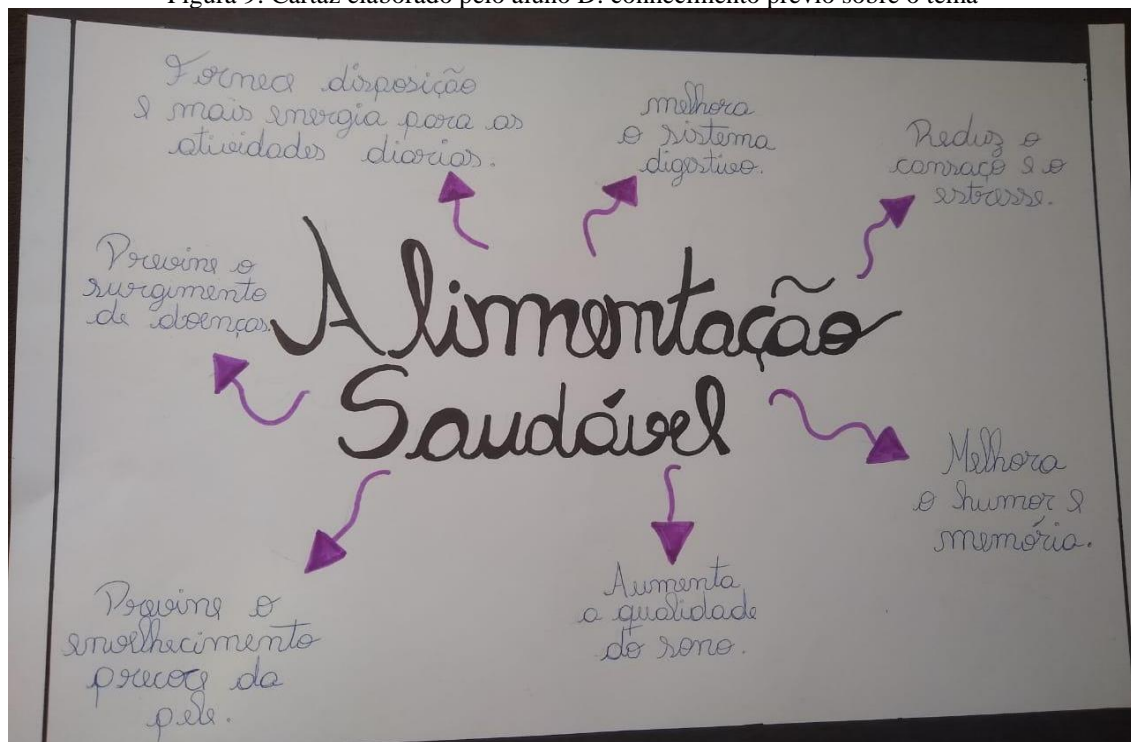 Figura 9: Cartaz elaborado pelo aluno D: conhecimento prévio sobre o tema
Fornece disposição
e mais energia para as
atividades diarias.
melhora
o sistema
digestivo.
Reduz o
cansaço e o
estresse.
Previne o
surgimento
de doenças.
Alimentação
Saudável
Melhora
o humor e
memória.
Previne o
envelhecimento
precoce da
pele.
Aumenta
a qualidade
do sono.